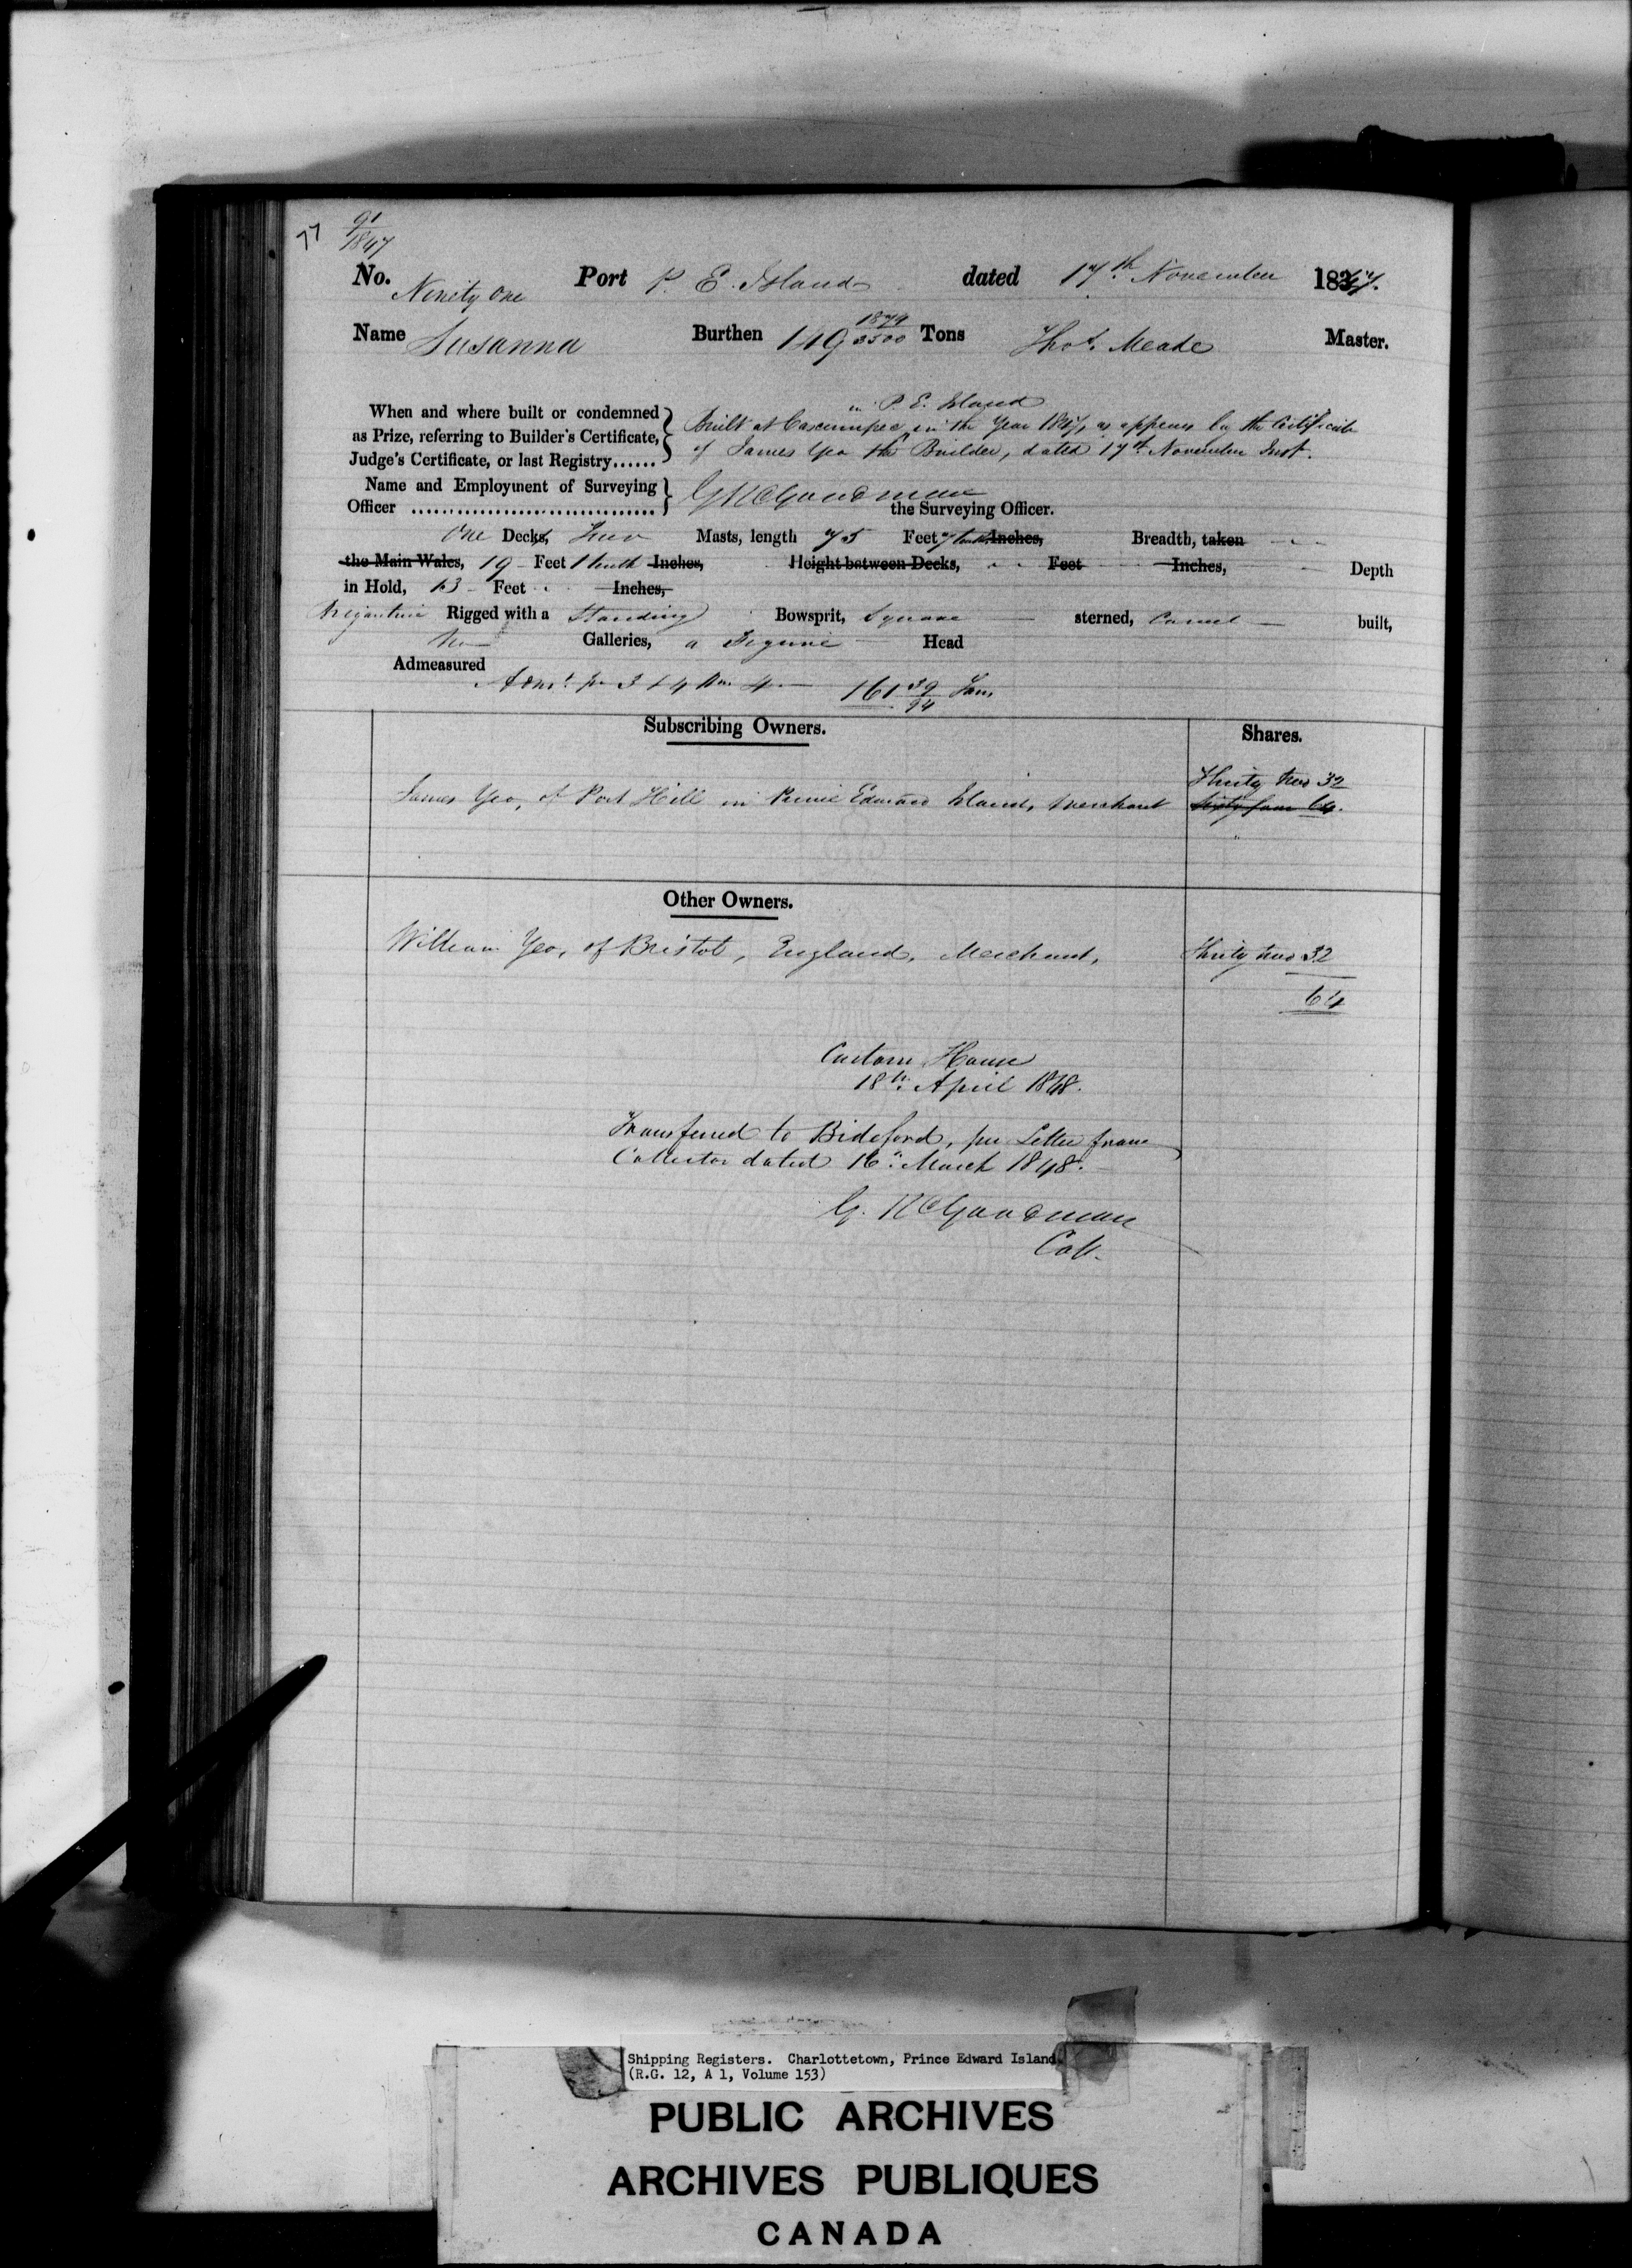 77
91
1847
No. Ninety One Port P. E. Island dated 17th November 1847.
Name Susanna Burthen 149 1879/3500 Tons Thos. Meade Master.
When and where built or condemned
as Prize, referring to Builder's Certificate,
Judge's Certificate, or last Registry......
in P. E. Island
Built at Cascumpec, in the Year 1847, as appears by the Certificate
of James Yeo the Builder, dated 17th November Inst.
Name and Employment of Surveying
Officer ................................
G R Goodman
the Surveying Officer.
One Decks, Two Masts, length 75 Feet 7 tenths Inches, Breadth, taken
the Main Wales, 19 Feet 1 tenth Inches, Height between Decks, Feet Inches, Depth
in Hold, 13 Feet Inches,
Brigantine Rigged with a Standing Bowsprit, Square sterned, Carvel built,
No Galleries, a Figure Head
Admeasured
161 39/94 Tons
Subscribing Owners. Shares.
Thirty two 32
James Yeo, of Port Hill in Prince Edward Island, Merchant Sixty four 64.
Other Owners.
William Yeo, of Bristol, England, Merchant, Thirty two 32
64
Custom House
18th April 1848.
Transferred to Bideford, per Letter from
Collector dated 16th March 1848.
G. R Goodman
Coll.
Shipping Registers. Charlottetown, Prince Edward Island
(R.G. 12, A 1, Volume 153)
PUBLIC ARCHIVES
ARCHIVES PUBLIQUES
CANADA